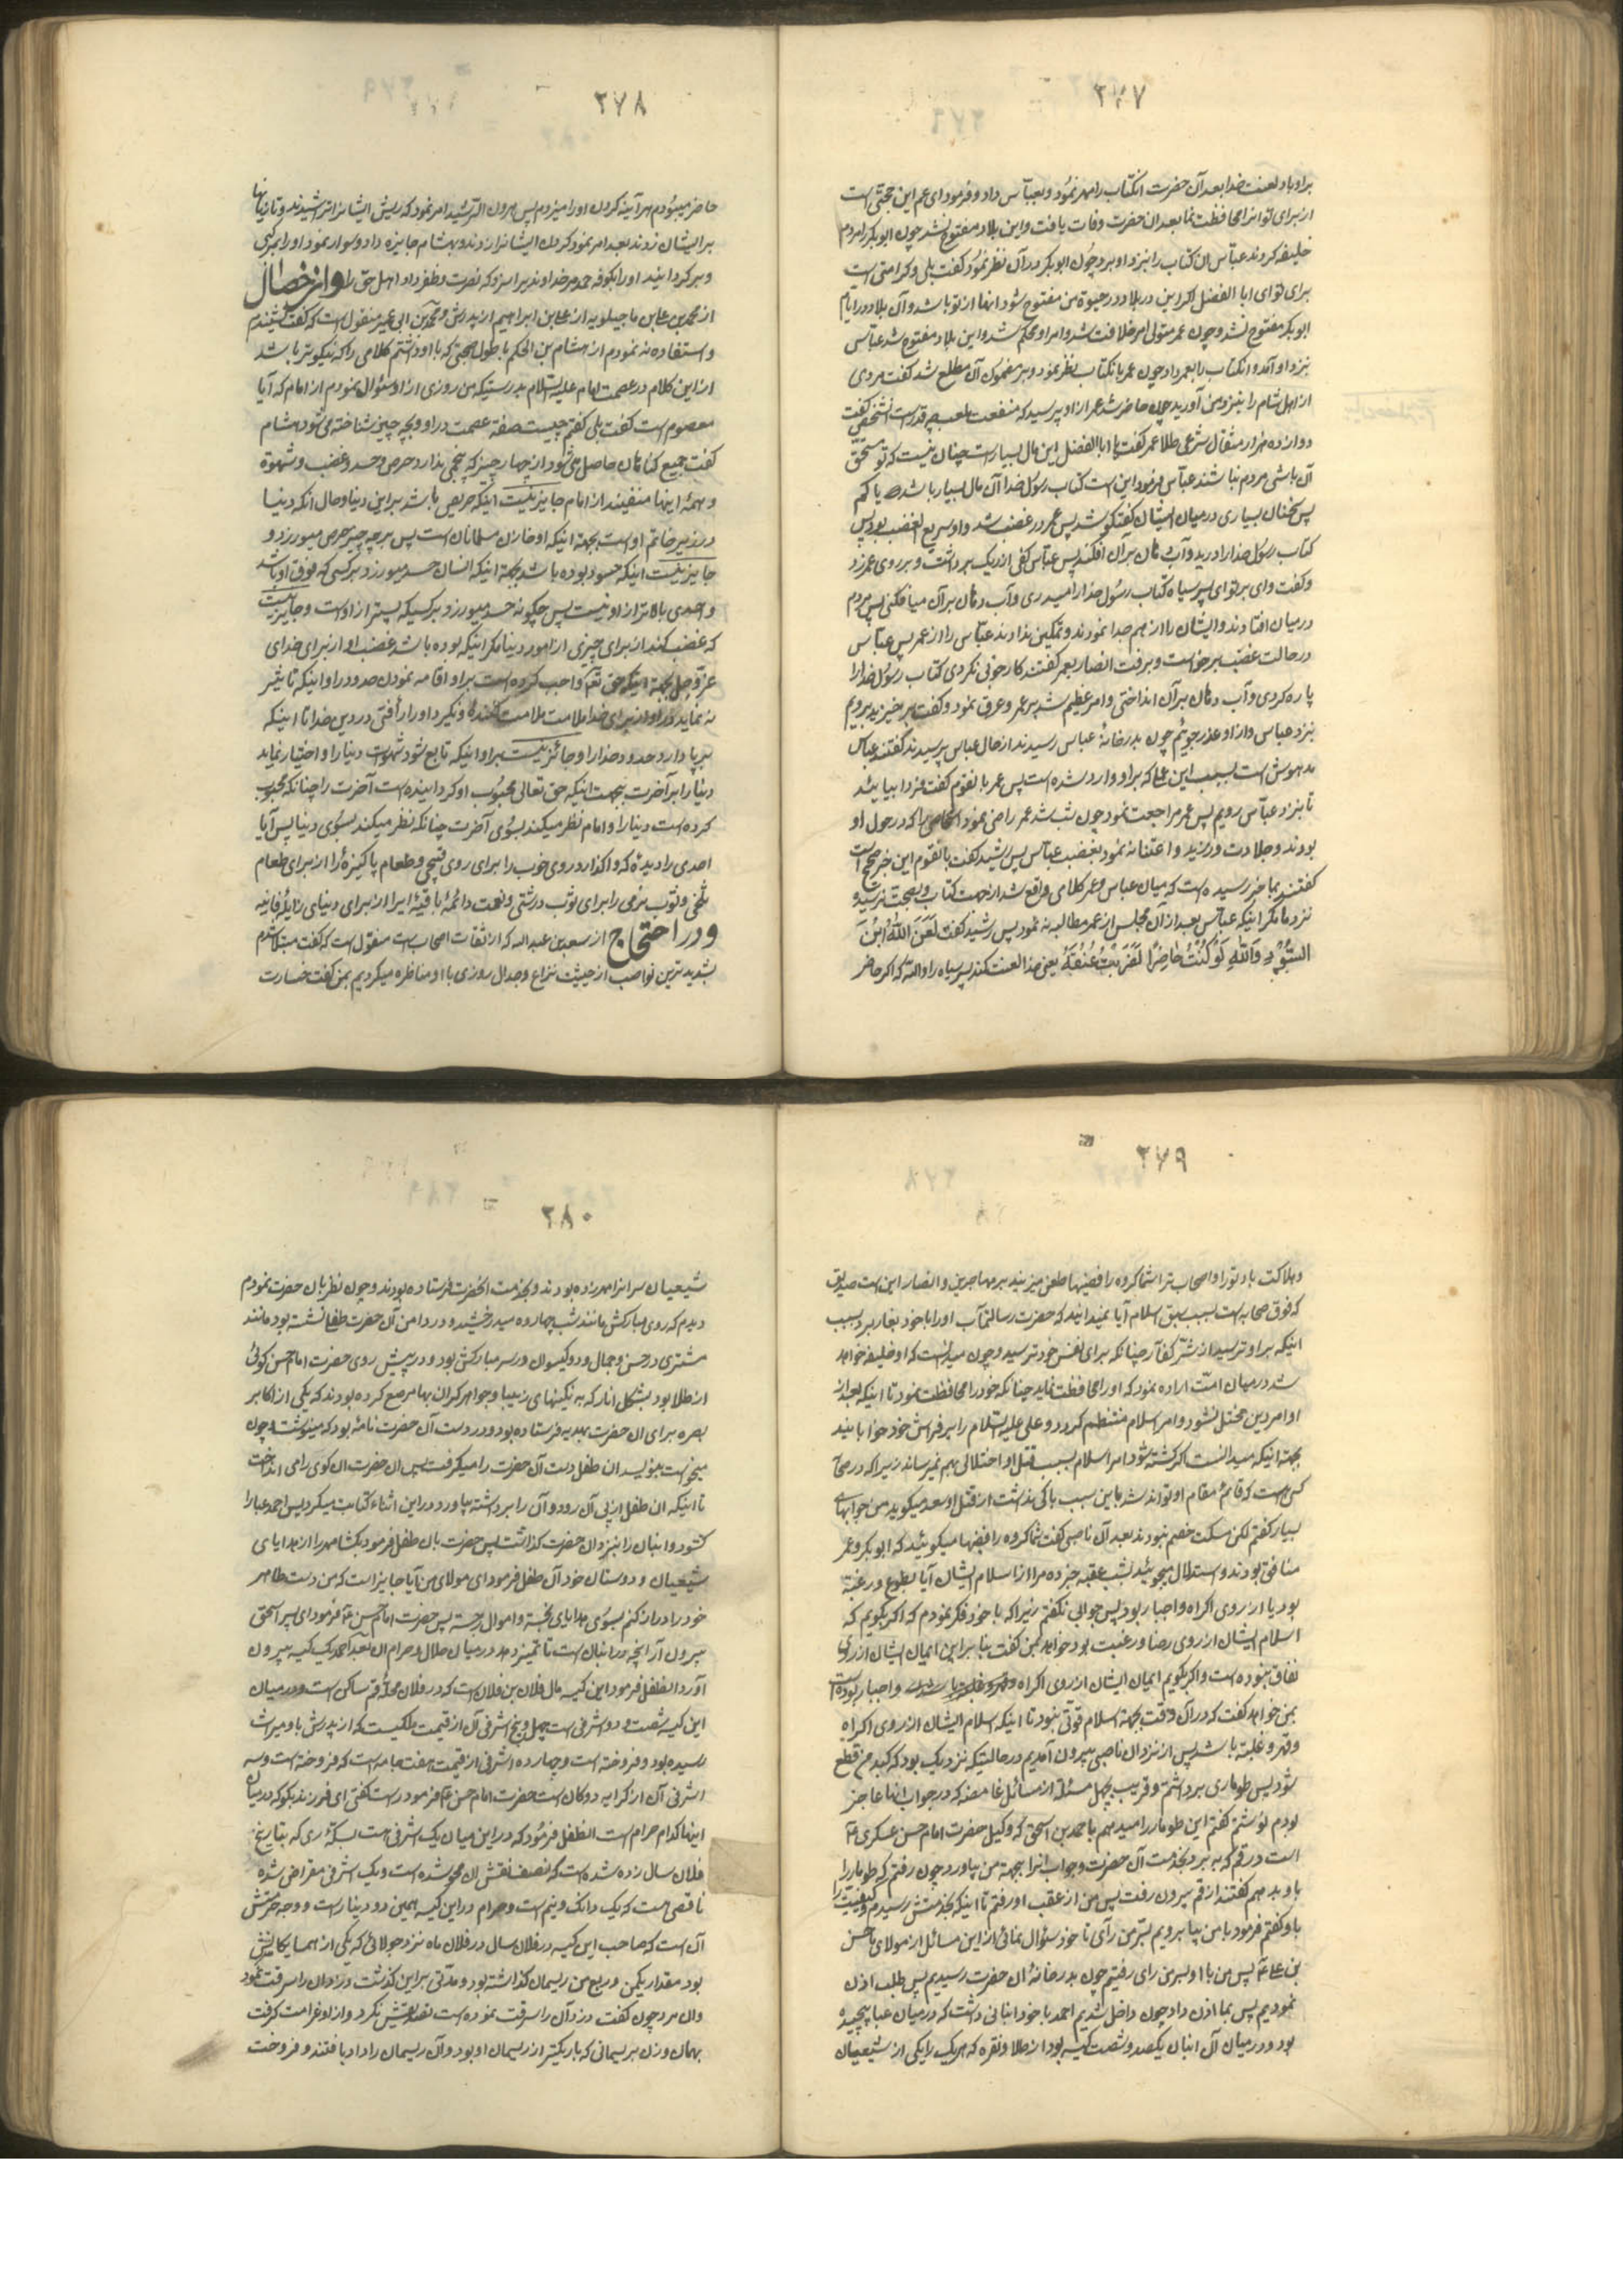 ۲۷۷
براو باد لعنت خدا بعد آن حضرت انکتاب را مهر نمود و بعباس داد و فرمود ای عم این حجتی است
از برای تو انرا محافظت نما بعد ان حضرت وفات یافت و این بلاد مفتوح نشد چون ابوبکر را مردم
خلیفه کردند عباس ان کتاب را بنزد او برد چون ابوبکر در آن نظر نمود گفت بلی و کرامتی است
برای تو ای ابا الفضل اگر این دو بلاد در حیوة من مفتوح شود انها از تو باشد و آن بلاد در ایام
ابوبکر مفتوح نشد و چون عمر متولی امر خلافت شد و امر او محکم شد و این بلاد مفتوح شد عباس
نزد او آمد و انکتاب را بعمر داد چون عمر بانکتاب نظر نمود و بر مضمون آن مطلع شد گفت مردی
از اهل شام را بنزد من آورید چون حاضر شد عمر از او پرسید که منفعت چه قدر است انشخص گفت
دوازده هزار مثقال شرعی طلا عمر گفت یا ابا الفضل این مال بسیار است چنان نیست که تو مستحق
آن باشی مردم نباشند عباس فرمود این است کتاب رسول خدا آن مال بسیار باشد یا کم
پس سخنان بسیاری در میان ایشان گفتگو شد پس عمر در غضب شد و او سریع الغضب بود پس
کتاب رسول خدا را درید و آب دهان بر آن افکند پس عباس کفی از ریک برداشت و بر روی عمر زد
و گفت وای بر تو ای پسر سیاه کتاب رسول خدا را میدری و آب دهان بر آن میافکنی پس مردم
در میان افتادند و ایشان را از هم جدا نمودند و تمکین ندادند عباس را از عمر پس عباس
در حالت غضب برخواست و برفت انصار بعمر گفتند کار خوبی نکردی کتاب رسول خدا را
پاره کردی و آب دهان بر آن انداختی و امر عظیم شد بر عمر و عرق نمود و گفت برخیزید برویم
نزد عباس و از او عذر جوئیم چون بدر خانهٔ عباس رسیدند از حال عباس پرسیدند گفتند عباس
مدهوش است بسبب این که بر او وارد شده است پس عمر بانقوم گفت فردا بیائید
تا بنزد عباس رویم پس عمر مراجعت نمود چون شب شد عمر راضی نمود اشخاصی را که در حول او
بودند و جلادت ورزید و اعتنا نه نمود بغضب عباس پس رشید گفت بانقوم این خبر صحیح است
گفتند بما خبر رسیده است که میان عباس و عمر کلامی واقع شد از جهت کتاب و بصحت نرسیده
نزد ما مگر اینکه عباس بعد از آن مجلس از عمر مطالبه نه نمود پس رشید گفت لَعَنَ اللّٰهُ ابْنَ
السَّوْدٰاءِ وَاللّٰهِ لَوْ كُنْتُ حٰاضِرًا لَضَرَبْتُ عُنُقَهُ یعنی خدا لعنت کند پسر سیاه را والله که اگر حاضر
۲۷۸
حاضر میبودم هر آینه کردن او را میزدم پس هرون الرشید امر نمود که ریش ایشانرا تراشیدند و تازیانها
بر ایشان زدند بعد امر نمود کردن ایشانرا زدند و بهشام جایزه داد و سوار نمود او را بمرکبی
و برگردانیدند او را بکوفه حمد مر خداوندیرا سزد که نصرت و ظفر داد اهل حق را واز خصال
از محمد بن علی ماجیلویه از علی بن ابراهیم از پدرش و محمد بن ابی عمیر منقول است که گفت نشنیدم
و استفاده نه نمودم از هشام بن الحکم با طول صحبتی که با او داشتم کلامی را که نیکوتر باشد
از این کلام در عصمت امام علیه السلام بدرستیکه من روزی از او سئوال نمودم از امام که آیا
معصوم است گفت بلی گفتم چیست صفة عصمت در او و بچه چیز شناخته می‌شود هشام
گفت جمیع گناهان حاصل می‌شود از چهار چیز که پنجمی ندارد حرص و حسد و غضب و شهوة
و همهٔ اینها منفیند از امام جایز نیست اینکه حریص باشد بر این دنیا و حال انکه دنیا
در زیر خاتم او است بجهة اینکه او خازن مسلمانان است پس بر چه چیز حرص میورزد و
جایز نیست اینکه حسود بوده باشد بجهة اینکه انسان حسد میورزد بر کسی که فوق او باشد
و احدی بالاتر از او نیست پس چگونه حسد میورزد بر کسیکه پستر از اوست و جایز نیست
که غضب کند از برای چیزی از امور دنیا مگر اینکه بوده باشد غضب او از برای خدای
عز و جل بجهة اینکه حق تعم واجب کرده است بر او اقامه نمودن حدود را و اینکه تاثیر
نه نماید در او از برای خدا ملامت ملامت کننده و نگیرد او را رأفتی در دین خدا تا اینکه
برپا دارد حدود خدا را و جائز نیست بر او اینکه تابع شود شهوات دنیا را و اختیار نماید
دنیا را بر آخرت بجهت اینکه حق تعالی محبوب او گردانیده است آخرت را چنانکه محبوب
کرده است دنیا را و امام نظر میکند بسوی آخرت چنانکه نظر میکند بسوی دنیا پس آیا
احدی را دیدهٔ که واگذارد روی خوب را برای روی قبیحی و طعام پاکیزهٔ را از برای طعام
تلخی و ثوب نرمی را برای ثوب درشتی و نعمت دائمهٔ باقیه را از برای دنیای زایلهٔ فانیه
ودر احتجاج از سعد بن عبدالله که از ثقات اصحاب است منقول است که گفت مبتلا شدم
بشدیدترین نواصب از حیثیت نزاع و جدال روزی با او مناظره میکردیم بمن گفت خسارت
۲۷۹
و هلاکت باد تو را و اصحاب ترا شما گروه رافضیها طعن میزنید بر مهاجرین و انصار این است صدیق
که فوق صحابه است بسبب سبق اسلام آیا نمیدانید که حضرت رسالتمآب او را با خود بغار برد بسبب
اینکه بر او ترسید از شرّ کفار چنانکه برای نفس خود ترسید و چون میدانست که او خلیفه خواهد
شد در میان امّت اراده نمود که او را محافظت نماید چنانکه خود را محافظت نمود تا اینکه بعد از
او امر دین مختل نشود و امر اسلام منتظم گردد و علی علیه السلام را بر فراش خود خوابانید
بجهة اینکه میدانست اگر کشته شود امر اسلام بسبب قتل او اختلالی بهم نمیرساند زیرا که در صحابه
کسی هست که قائم مقام او تواند شد باین سبب باکی نداشت از قتل او سعد میگوید من جوابهای
بسیار گفتم لکن مسکت خصم نبودند بعد آن ناصبی گفت شما گروه رافضیها میگوئید که ابوبکر و عمر
منافق بودند و استدلال میجوئید بشب عقبه خبر ده مرا از اسلام ایشان آیا بطوع و رغبة
بود یا از روی اکراه و اجبار بود پس جوابی نگفتم زیرا که با خود فکر نمودم که اگر بگویم که
اسلام ایشان از روی رضا و رغبت بود خواهد بمن گفت بنابر این ایمان ایشان از روی
نفاق نبوده است و اگر بگویم ایمان ایشان از روی اکراه و اجبار بوده است
بمن خواهد گفت که در آن وقت بجهة اسلام قوتی نبود تا اینکه اسلام ایشان از روی اکراه
و قهر و غلبه باشد پس از نزد ان ناصبی بیرون آمدیم در حالتیکه نزدیک بود که کبد من قطع
شود پس طوماری برداشتم و قریب بچهل مسئله از مسائل غامضه که در جواب انها عاجز
بودم نوشتم گفتم این طومار را میدهم باحمد بن اسحق که وکیل حضرت امام حسن عسکری ع
است در قم که به برد بخدمت آن حضرت و جواب انرا بجهة من بیاورد چون رفتم که طومار را
باو بدهم گفتند از قم بیرون رفت پس من از عقب او رفتم تا اینکه بخدمتش رسیدم و کیفیت را
باو گفتم فرمود با من بیا برویم بسرّ من رآی تا خود سئوال نمائی از این مسائل از مولای ما حسن
بن علی ع پس من با او بسر من رای رفتیم چون بدر خانهٔ ان حضرت رسیدیم پس طلب اذن
نمودیم پس بما اذن داد چون داخل شدیم احمد با خود انبانی داشت که در میان عبا پیچیده
بود و در میان آن انبان یکصد و شصت کیسه بود از طلا و نقره که هر یک را یکی از شیعیان
۲۸۰
شیعیان سر انرا مهر زده بودند و بخدمت انحضرت فرستاده بودند و چون نظر بان حضرت نمودم
دیدم که روی مبارکش مانند شب چهارده میدرخشید و در دامن آن حضرت طفلی نشسته بود مانند
مشتری در حسن و جمال و دو گیسوان در سر مبارکش بود و در پیش روی حضرت امام حسن گوئی
از طلا بود بشکل انار که به نگینهای زیبا و جواهر گران بها مرصع کرده بودند که یکی از اکابر
بصره برای ان حضرت بهدیه فرستاده بود و در دست آن حضرت نامهٔ بود که مینوشت و چون
میخواست بنویسد ان طفل دست آن حضرت را میگرفت پس ان حضرت ان گوی را می انداخت
تا اینکه ان طفل از پی آن رود و آن را برداشته بیاورد در این اثناء کتابت میکرد پس احمد عبا را
گشود و انبان را بنزد ان حضرت گذاشت پس حضرت بان طفل فرمود بگشا مهر را از هدایای
شیعیان و دوستان خود آن طفل فرمود ای مولای من آیا جایز است که من دست طاهر
خود را دراز کنم بسوی هدایای نجسة و اموال رجسة پس حضرت امام حسن ع فرمود ای پسر اسحق
بیرون آر انچه در انبان است تا تمیز دهد در میان حلال و حرام ان بعد احمد یک کیسه بیرون
آورد انطفل فرمود این کیسه مال فلان بن فلان است که در فلان محلهٔ قم ساکن است و در میان
این کیسه شصت و دو اشرفی است چهل و پنج اشرفی آن از قیمت ملکیست که از پدرش باو میراث
رسیده بود و فروخته است و چهارده اشرفی از قیمت هفت جامه است که فروخته است و سه
اشرفی آن از کرایه دوکان است حضرت امام حسن ع فرمود راست گفتی ای فرزند بگو که در میان
اینها کدام حرام است انطفل فرمود که در این میان یک اشرفی است بسکهٔ ری که بتاریخ
فلان سال زده شده است که نصف نقش ان محو شده است و یک اشرفی مقراض شده
ناقصی هست که یک دانک و نیم است و حرام در این کیسه همین دو دینار است و وجه حرمتش
آن است که صاحب این کیسه در فلان سال در فلان ماه نزد جولائی که یکی از همسایگانش
بود مقدار یکمن و ربع من ریسمان گذاشته بود و مدتی بر این گذشت دزد ان را سرقت نمود
و ان مرد چون گفت دزد آن را سرقت نموده است تصدیقش نکرد و از او غرامت گرفت
بهمان وزن بریسمانی که باریکتر از ریسمان او بود و آن ریسمان را داد بافتند و فروخت